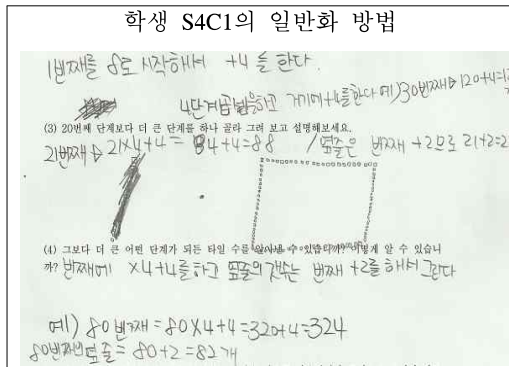 학생 S4C1의 일반화 방법
1번째를 8로 시작해서 +4를 한다.
4단계곱셈을하고 거기에+4를한다 예)30번째▷120+4=12
(3) 20번째 단계보다 더 큰 단계를 하나 골라 그려 보고 설명해보세요.
21번째▷21×4+4= 84+4=88 / 옆줄은 번째 +2므로 21+2=2
(4) 그보다 더 큰 어떤 단계가 되든 타일 수를 알아낼 수 있습니까? 어떻게 알 수 있습니
까? 번째에 ×4+4를하고 옆줄의갯수는 번째 +2를 해서 그린다
예) 80번째=80×4+4=320+4=324
80번째의옆줄=80+2=82개